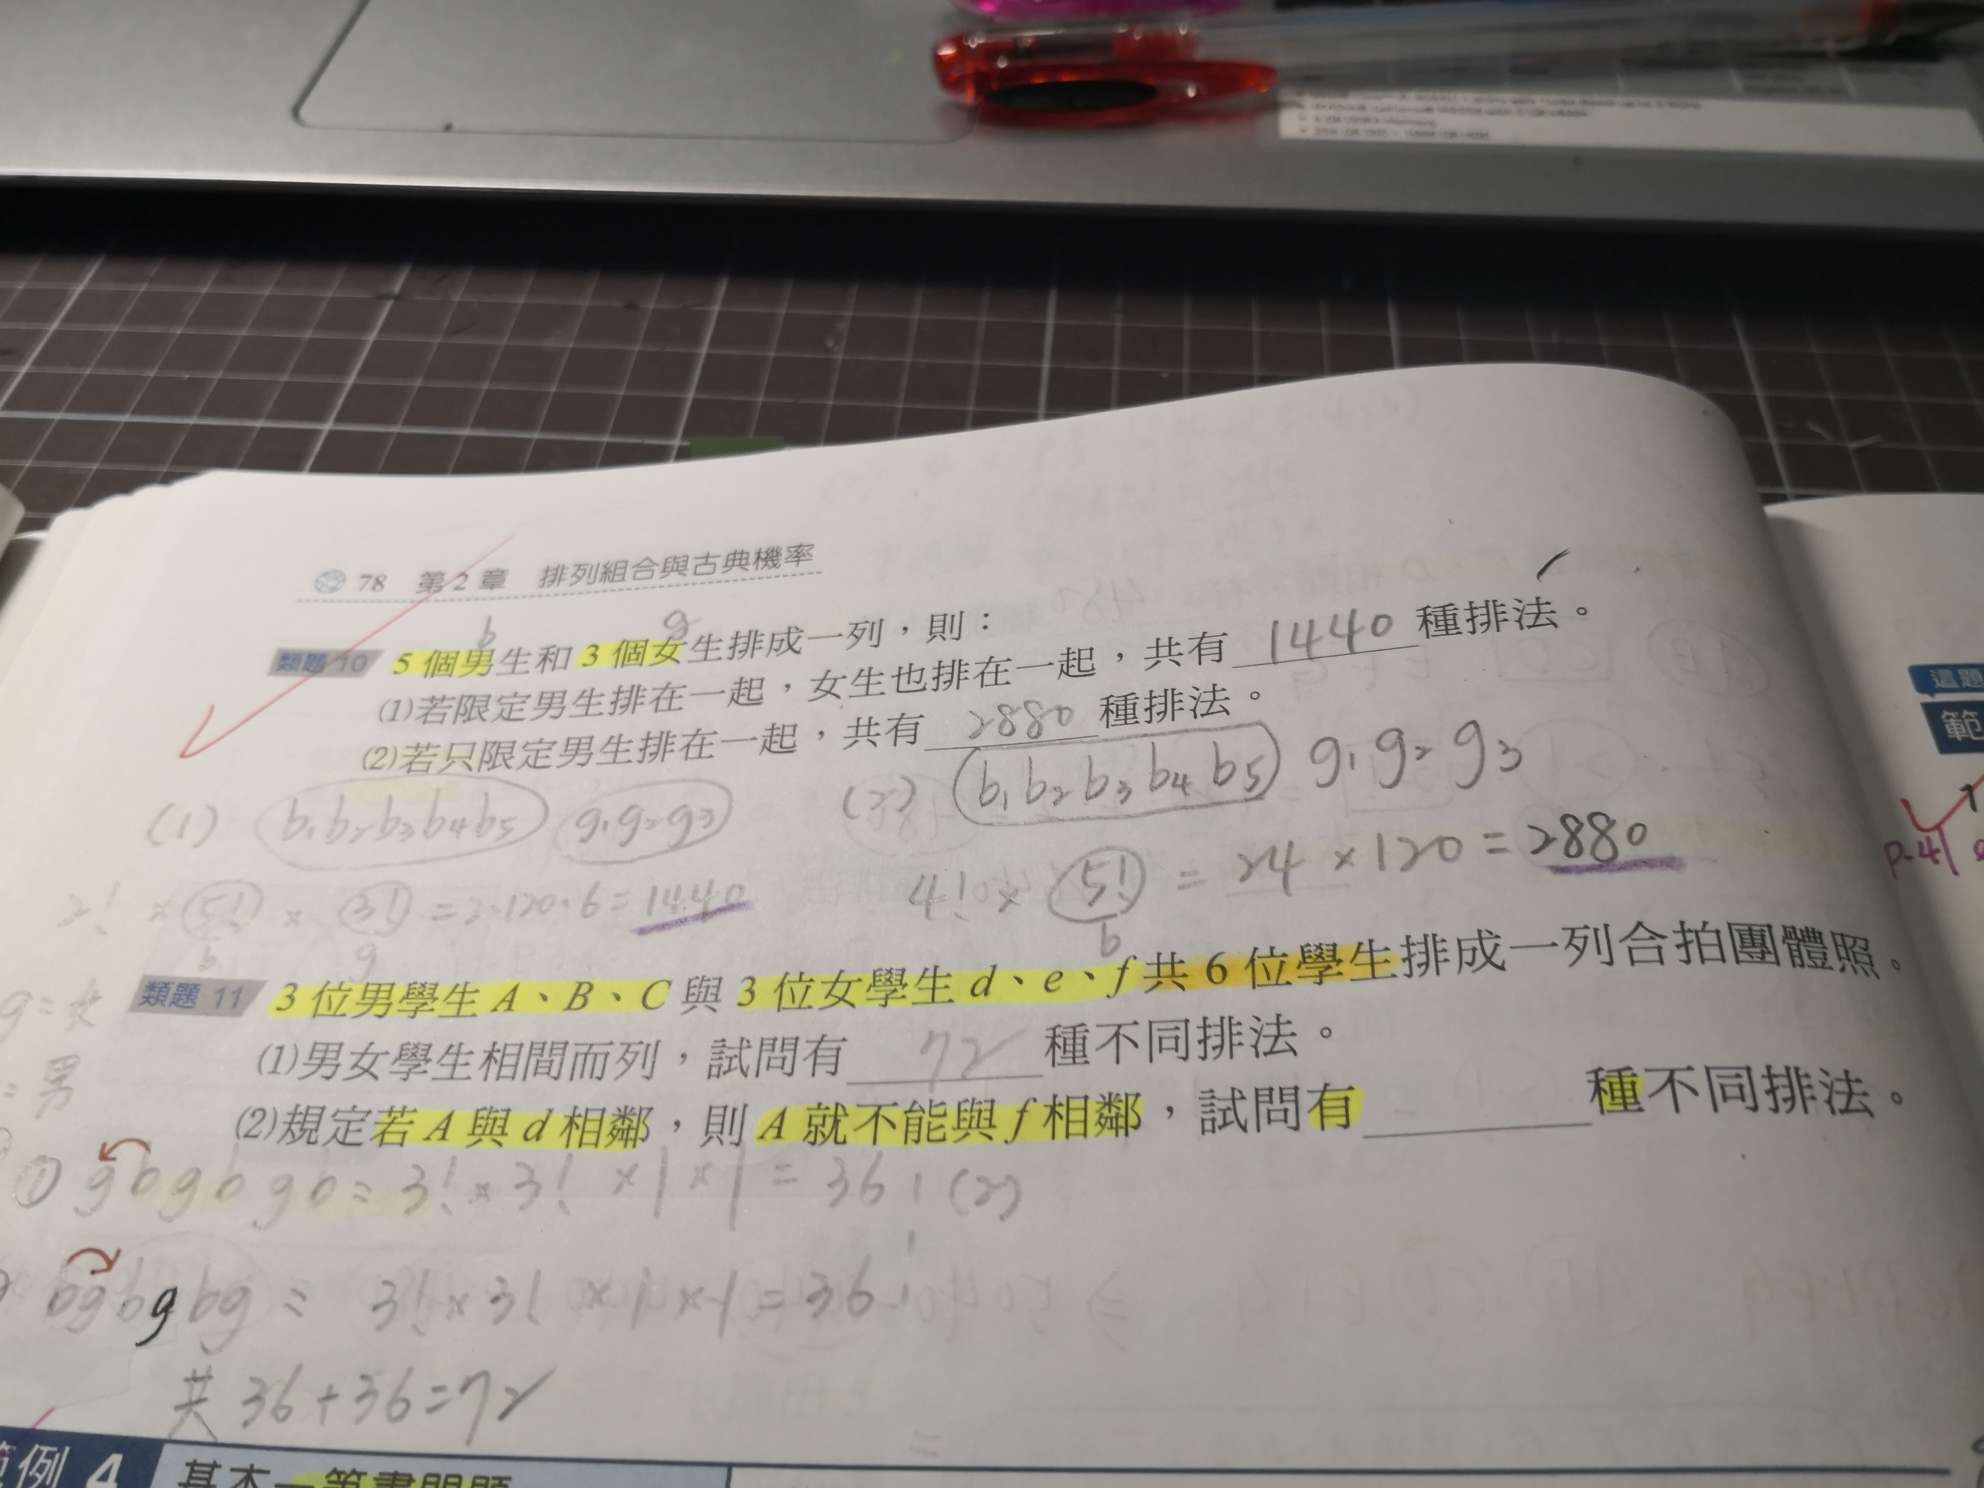 78 第2章 排列組合與古典機率
b g
類題 10 5個男生和3個女生排成一列，則：
(1)若限定男生排在一起，女生也排在一起，共有 1440 種排法。
(2)若只限定男生排在一起，共有 2880 種排法。
(1) b₁b₂b₃b₄b₅ g₁g₂g₃
2! × 5! × 3! = 2·120·6 = 1440
b g
(2) b₁b₂b₃b₄b₅ g₁g₂g₃
4! × 5! = 24 × 120 = 2880
b
類題 11 3位男學生A、B、C與3位女學生d、e、f共6位學生排成一列合拍團體照。
(1)男女學生相間而列，試問有 72 種不同排法。
(2)規定若A與d相鄰，則A就不能與f相鄰，試問有 種不同排法。
g=女
=男
① gbgbgb = 3! × 3! × 1 × 1 = 36
(2)
bgbgbg = 3! × 3! × 1 × 1 = 36
共 36+36=72
例 4
這題
範
P.41